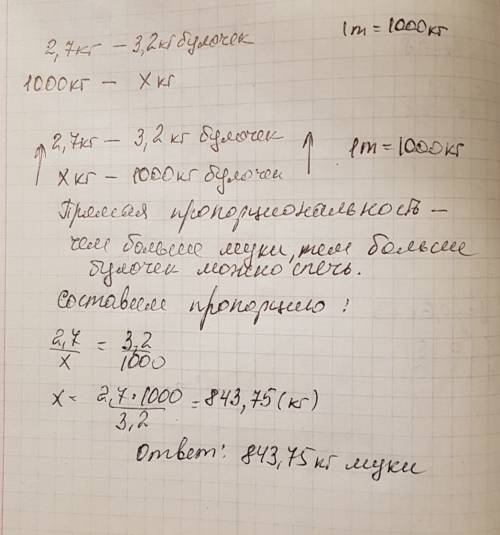 2,7кг – 3,2кг булочек
1т = 1000кг
1000кг – х кг
2,7кг – 3,2 кг булочек
1т = 1000кг
х кг – 1000кг булочек
Прямая пропорциональность –
чем больше муки, тем больше
булочек можно спечь.
Составим пропорцию:
2,7/х = 3,2/1000
х = 2,7·1000/3,2 = 843,75(кг)
Ответ: 843,75кг муки